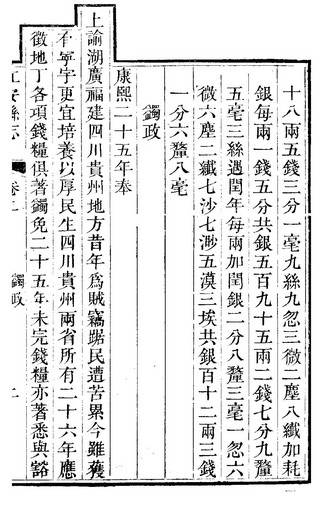 十八兩五錢三分一毫九絲九忽三微二塵八纖加耗
銀每兩一錢五分共銀五百九十五兩二錢七分九釐
五毫三絲遇閏年每兩加閏銀二分八釐三毫一忽六
微六塵二纖七沙七渺五漠三埃共銀百十二兩三錢
一分六釐八毫
蠲政
康熙二十五年奉
上諭湖廣福建四川貴州地方昔年爲賊竊踞民遭苦累今雖獲
寧宇更宜培養以厚民生四川貴州兩省所有二十六年應
徵地丁各項錢糧俱著蠲免二十五年未完錢糧亦著悉與豁
江安縣志 卷二 蠲政